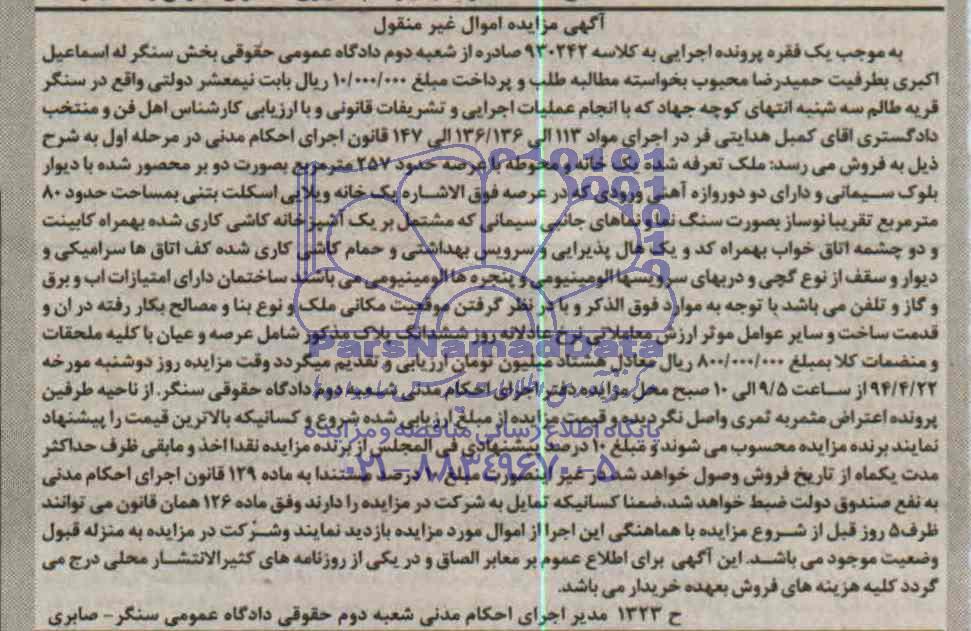 آگهی مزایده اموال غیر منقول
به موجب یک فقره پرونده اجرایی به کلاسه ۹۳۰۲۴۲ صادره از شعبه دوم دادگاه عمومی حقوقی بخش سنگر له اسماعیل
اکبری بطرفیت حمیدرضا محبوب بخواسته مطالبه طلب و پرداخت مبلغ ۱۰/۰۰۰/۰۰۰ ریال بابت نیمعشر دولتی واقع در سنگر
قریه طالم سه شنبه انتهای کوچه جهاد که با انجام عملیات اجرایی و تشریفات قانونی و با ارزیابی کارشناس اهل فن و منتخب
دادگستری اقای کمیل هدایتی فر در اجرای مواد ۱۱۳ الی ۱۳۶/۱۳۶ الی ۱۴۷ قانون اجرای احکام مدنی در مرحله اول به شرح
ذیل به فروش می رسد: ملک تعرفه شده یک خانه و محوطه با عرصه حدود ۲۵۷ مترمربع بصورت دو بر محصور شده با دیوار
بلوک سیمانی و دارای دو دوروازه آهنی ورودی که در عرصه فوق الاشاره یک خانه ویلایی اسکلت بتنی بمساحت حدود ۸۰
مترمربع تقریبا نوساز بصورت سنگ نما و نماهای جانبی سیمانی که مشتمل بر یک آشپزخانه کاشی کاری شده بهمراه کابینت
و دو چشمه اتاق خواب بهمراه کد و یک هال پذیرایی و سرویس بهداشتی و حمام کاشی کاری شده کف اتاق ها سرامیکی و
دیوار و سقف از نوع گچی و دربهای سرویسها الومینیومی و پنجره ها الومینیومی می باشد. ساختمان دارای امتیازات اب و برق
و گاز و تلفن می باشد با توجه به موارد فوق الذکر و با در نظر گرفتن موقعیت مکانی ملک و نوع بنا و مصالح بکار رفته در ان و
قدمت ساخت و سایر عوامل موثر ارزش معاملاتی نرخ عادلانه روز ششدانگ پلاک مذکور شامل عرصه و عیان با کلیه ملحقات
و منضمات کلا بمبلغ ۸۰۰/۰۰۰/۰۰۰ ریال معادل هشتاد میلیون تومان ارزیابی و تقدیم میگردد وقت مزایده روز دوشنبه مورخه
۹۴/۴/۲۲ از ساعت ۹/۵ الی ۱۰ صبح محل مزایده دفتر اجرای احکام مدنی شعبه دوم دادگاه حقوقی سنگر. از ناحیه طرفین
پرونده اعتراض مثمربه ثمری واصل نگردیده و قیمت مزایده از مبلغ ارزیابی شده شروع و کسانیکه بالاترین قیمت را پیشنهاد
نمایند برنده مزایده محسوب می شوند و مبلغ ۱۰ درصد پیشنهادی فی المجلس از برنده مزایده نقدا اخذ و مابقی ظرف حداکثر
مدت یکماه از تاریخ فروش وصول خواهد شد در غیر اینصورت مبلغ ۱۰ درصد مستندا به ماده ۱۲۹ قانون اجرای احکام مدنی
به نفع صندوق دولت ضبط خواهد شد، ضمنا کسانیکه تمایل به شرکت در مزایده را دارند وفق ماده ۱۲۶ همان قانون می توانند
ظرف ۵ روز قبل از شروع مزایده با هماهنگی این اجرا از اموال مورد مزایده بازدید نمایند و شرکت در مزایده به منزله قبول
وضعیت موجود می باشد. این آگهی برای اطلاع عموم بر معابر الصاق و در یکی از روزنامه های کثیرالانتشار محلی درج می
گردد کلیه هزینه های فروش بعهده خریدار می باشد.
ح ۱۳۲۳ مدیر اجرای احکام مدنی شعبه دوم حقوقی دادگاه عمومی سنگر - صابری
ParsNamadData
پایگاه اطلاع رسانی مناقصه و مزایده
۰۲۱-۸۸۳۴۹۶۷۰-۵